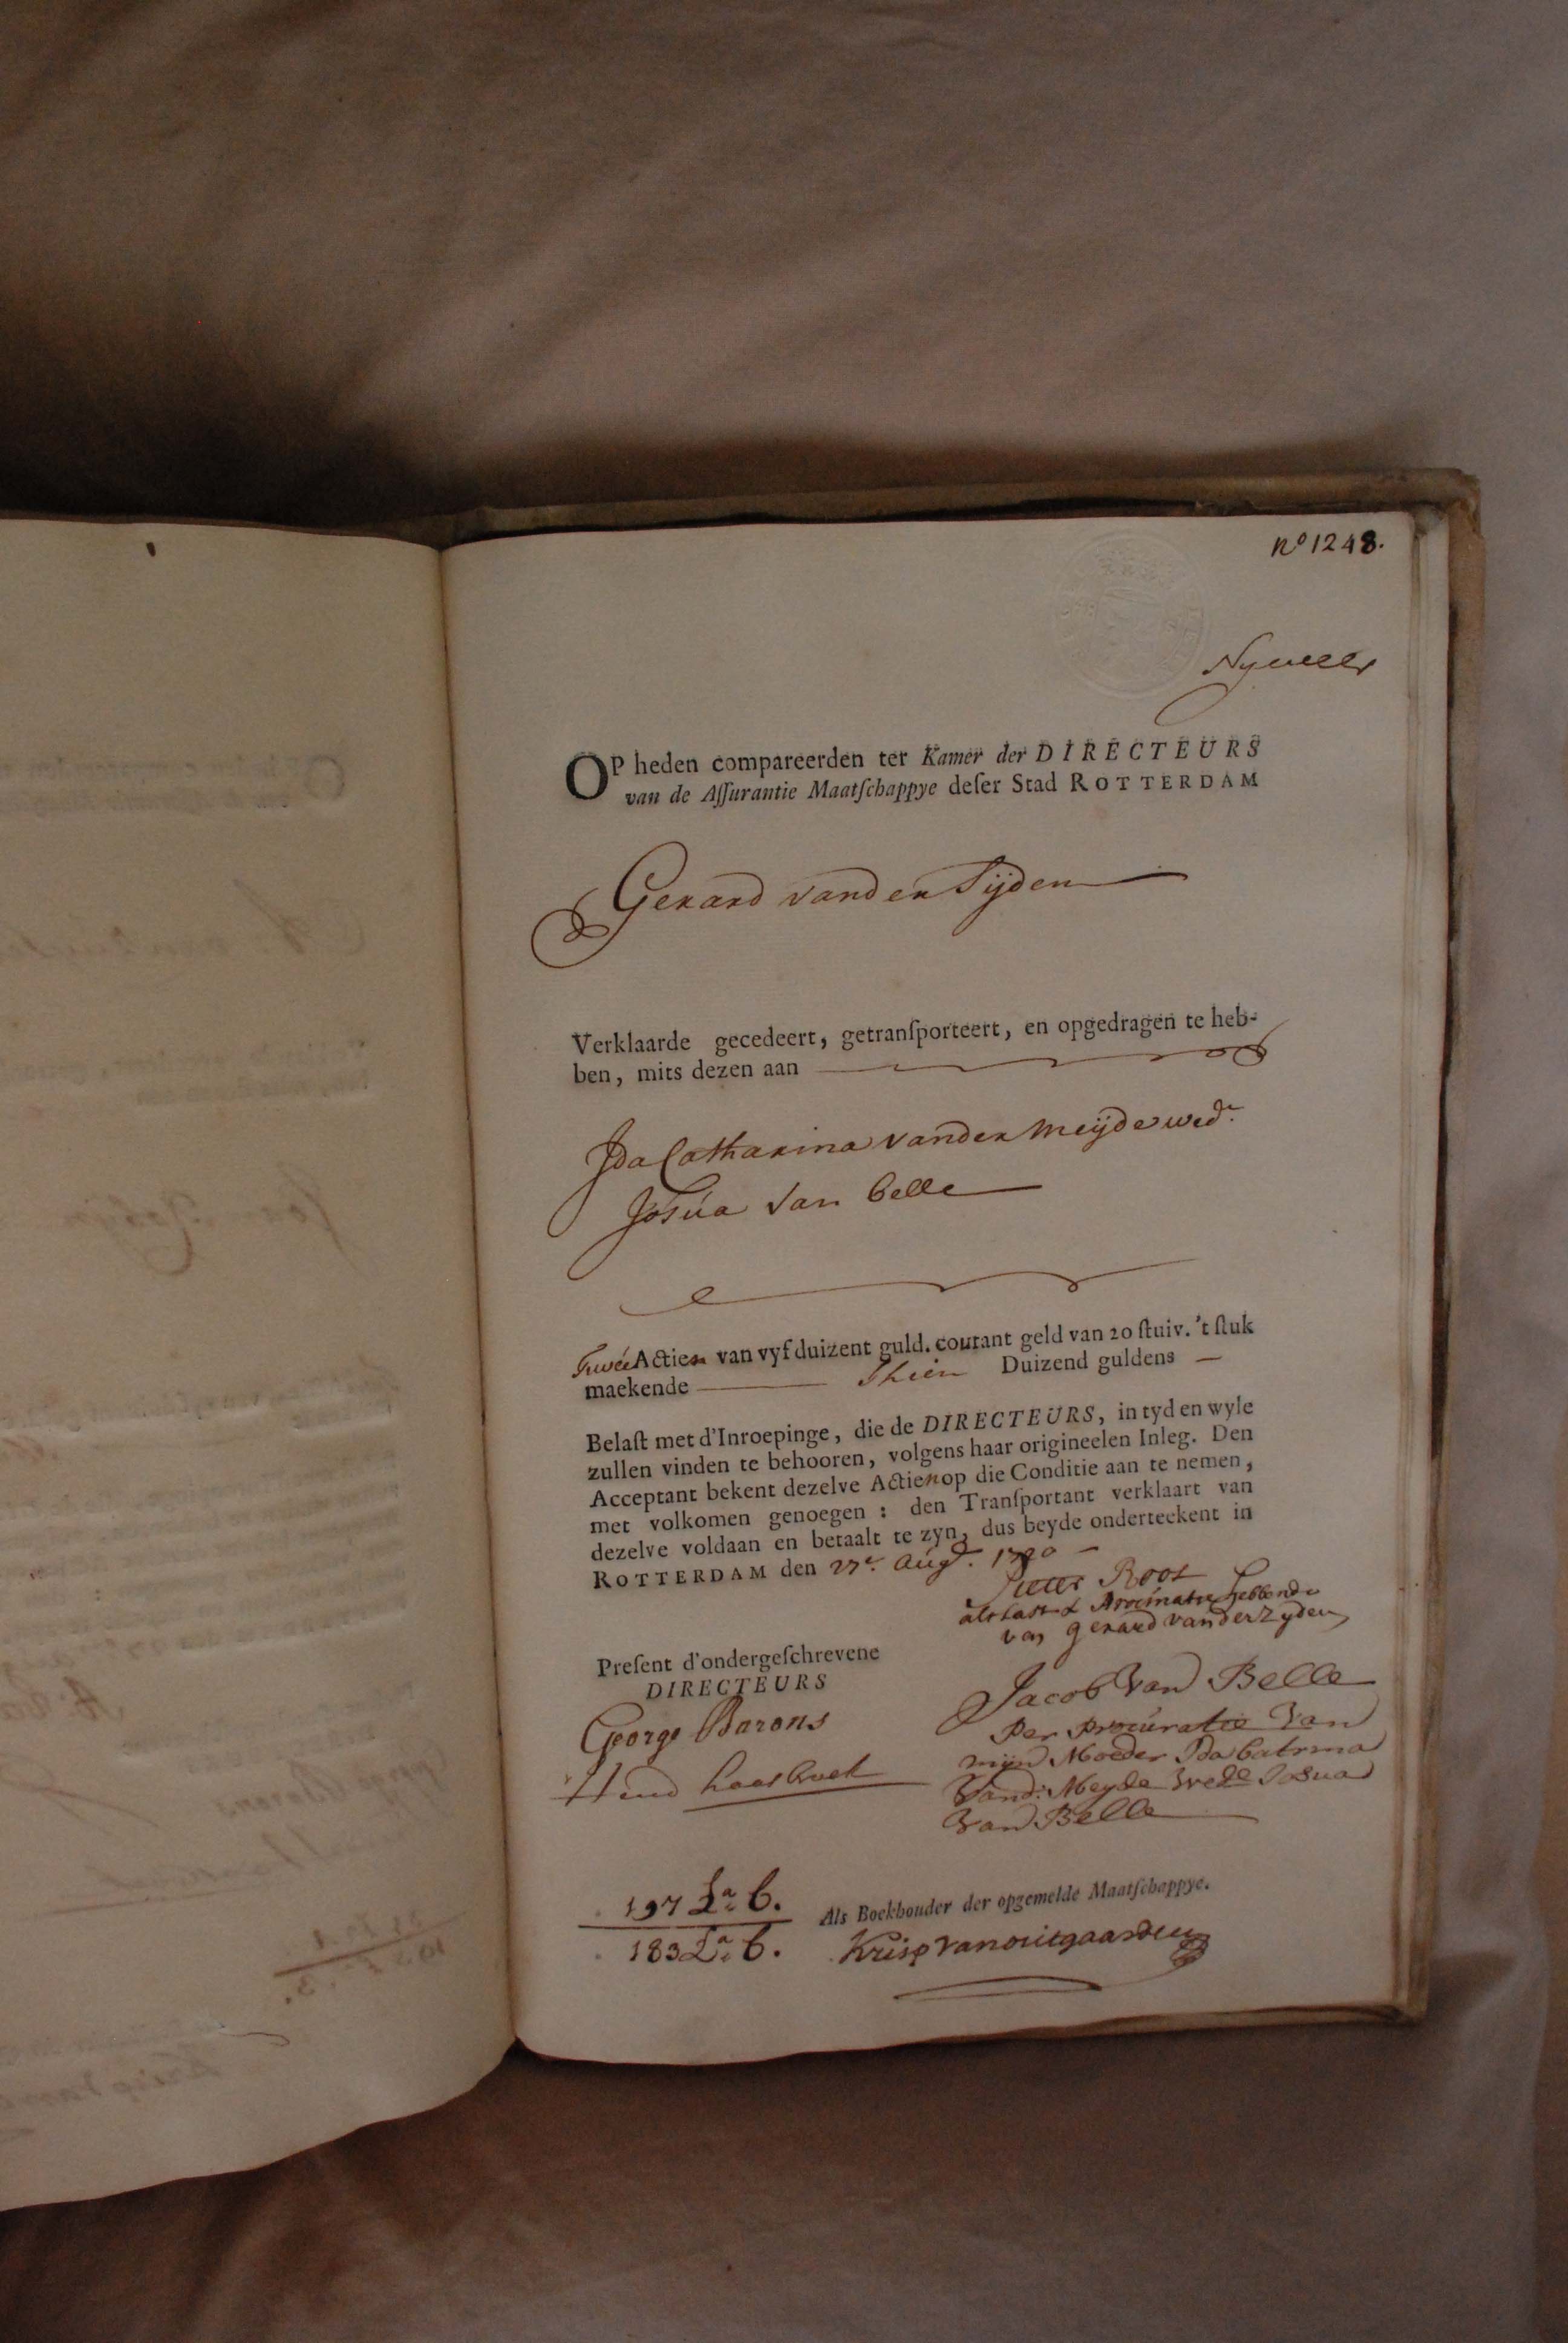 No 1248.
Nyvelt
OP heden compareerden ter Kamer der DIRECTEURS
van de Aſſurantie Maatſchappye deſer Stad ROTTERDAM
Gerard vander Sijden
Verklaarde gecedeert, getranſporteert, en opgedragen te heb-
ben, mits dezen aan
Ida Catharina vander Meijde wede.
Josua van Belle
Twée Actien van vyf duizent guld. courant geld van 20 ſtuiv. 't ſtuk
maekende Thien Duizend guldens
Belaſt met d'Inroepinge, die de DIRECTEURS, in tyd en wyle
zullen vinden te behooren, volgens haar origineelen Inleg. Den
Acceptant bekent dezelve Actien op die Conditie aan te nemen,
met volkomen genoegen : den Tranſportant verklaart van
dezelve voldaan en betaalt te zyn, dus beyde onderteekent in
ROTTERDAM den 27e. Augt. 1720
Pieter Roos
als last & Procuratie hebbende
van gerard van der Zyden
Preſent d'ondergeſchrevene
DIRECTEURS
George Barons
Jacob Van Belle
Per Procúratie Van
mijn Moeder Ida Catrina
Vand: Meyde Wede Josua
Van Belle
197 La. b.
183 La. b.
Als Boekhouder der opgemelde Maatſchappye.
Krisp van outgaarden